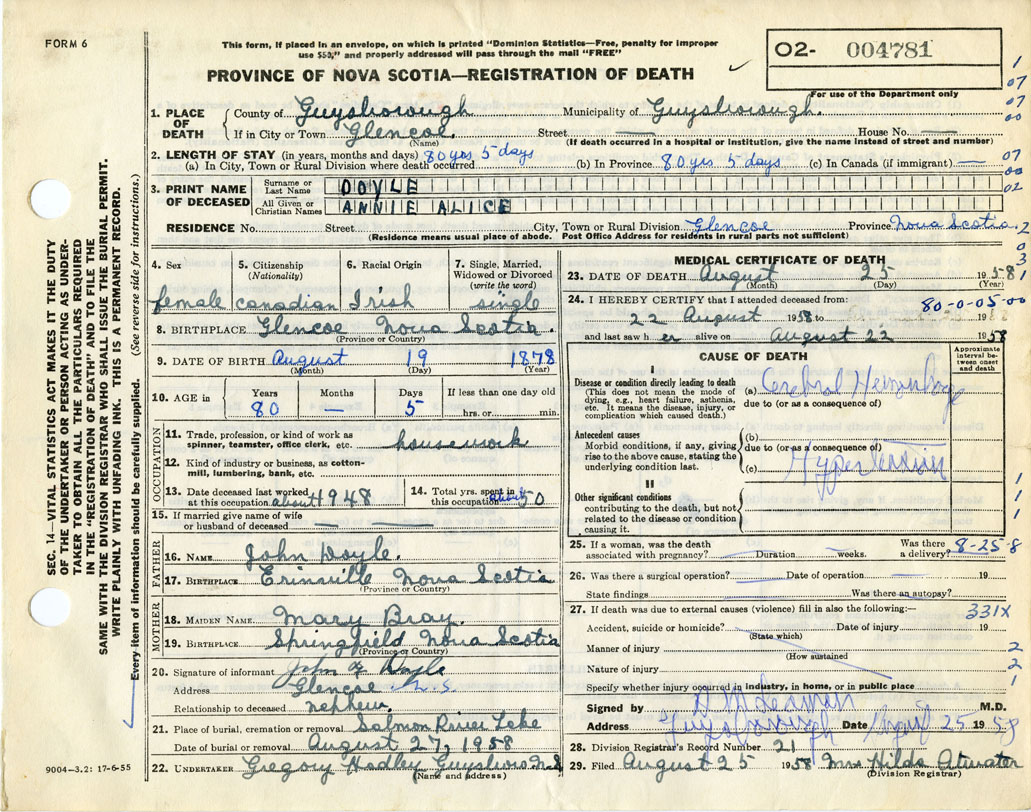 FORM 6
This form, if placed in an envelope, on which is printed "Dominion Statistics—Free, penalty for improper
use $50," and properly addressed will pass through the mail "FREE"
PROVINCE OF NOVA SCOTIA—REGISTRATION OF DEATH
O2- 004781
For use of the Department only
1. PLACE OF DEATH County of Guysborough Municipality of Guysborough.
If in City or Town Glencoe. (Name) Street — House No. —
(If death occurred in a hospital or institution, give the name instead of street and number)
2. LENGTH OF STAY (in years, months and days) 80 yrs 5 days
(a) In City, Town or Rural Division where death occurred (b) In Province 80 yrs 5 days (c) In Canada (if immigrant) —
3. PRINT NAME OF DECEASED Surname or Last Name DOYLE
All Given or Christian Names ANNIE ALICE
RESIDENCE No. Street City, Town or Rural Division Glencoe Province Nova Scotia.
(Residence means usual place of abode. Post Office Address for residents in rural parts not sufficient)
4. Sex female
5. Citizenship (Nationality) canadian
6. Racial Origin Irish
7. Single, Married, Widowed or Divorced (write the word) single
8. BIRTHPLACE Glencoe Nova Scotia.
(Province or Country)
9. DATE OF BIRTH August 19 1878
(Month) (Day) (Year)
10. AGE in Years 80 Months — Days 5 If less than one day old hrs. or min.
OCCUPATION
11. Trade, profession, or kind of work as spinner, teamster, office clerk, etc. housework
12. Kind of industry or business, as cotton-mill, lumbering, bank, etc.
13. Date deceased last worked at this occupation about 1948
14. Total yrs. spent in this occupation about 50
15. If married give name of wife or husband of deceased —
FATHER
16. NAME John Doyle.
17. BIRTHPLACE Erinville Nova Scotia
(Province or Country)
MOTHER
18. MAIDEN NAME Mary Bray.
19. BIRTHPLACE Springfield Nova Scotia
(Province or Country)
20. Signature of informant John Doyle
Address Glencoe N.S.
Relationship to deceased nephew.
21. Place of burial, cremation or removal Salmon River Lake
Date of burial or removal August 27, 1958
22. UNDERTAKER Gregory Hadley Guysboro N.S
(Name and address)
MEDICAL CERTIFICATE OF DEATH
23. DATE OF DEATH August 25 1958
(Month) (Day) (Year)
24. I HEREBY CERTIFY that I attended deceased from: 80-0-05-00
22 August 1958 to 19
and last saw her alive on August 22 1958
CAUSE OF DEATH
Approximate interval between onset and death
I
Disease or condition directly leading to death
(This does not mean the mode of dying, e.g., heart failure, asthenia, etc. It means the disease, injury, or complication which caused death.)
(a) Cerebral Hemorrhage
due to (or as a consequence of)
Antecedent causes
Morbid conditions, if any, giving rise to the above cause, stating the underlying condition last.
(b)
due to (or as a consequence of)
(c) Hypertension
II
Other significant conditions
contributing to the death, but not related to the disease or condition causing it.
25. If a woman, was the death associated with pregnancy? Duration weeks. Was there a delivery? 8-25-8
26. Was there a surgical operation? Date of operation 19
State findings Was there an autopsy?
27. If death was due to external causes (violence) fill in also the following:— 331X
Accident, suicide or homicide? Date of injury 19
(State which)
Manner of injury
(How sustained
Nature of injury
Specify whether injury occurred in industry, in home, or in public place
Signed by M.D.
Address Guysborough Date August 25 1958
28. Division Registrar's Record Number 21
29. Filed August 25 1958 Mrs Hilda Atwater
(Division Registrar)
SEC. 14—VITAL STATISTICS ACT MAKES IT THE DUTY
OF THE UNDERTAKER OR PERSON ACTING AS UNDER-
TAKER TO OBTAIN ALL THE PARTICULARS REQUIRED
IN THE "REGISTRATION OF DEATH" AND TO FILE THE
SAME WITH THE DIVISION REGISTRAR WHO SHALL ISSUE THE BURIAL PERMIT.
WRITE PLAINLY WITH UNFADING INK. THIS IS A PERMANENT RECORD.
Every item of information should be carefully supplied. (See reverse side for instructions.)
9004—3.2: 17-6-55
1
07
07
00
07
00
02
2
9
3
1
1
1
1
2
2
1